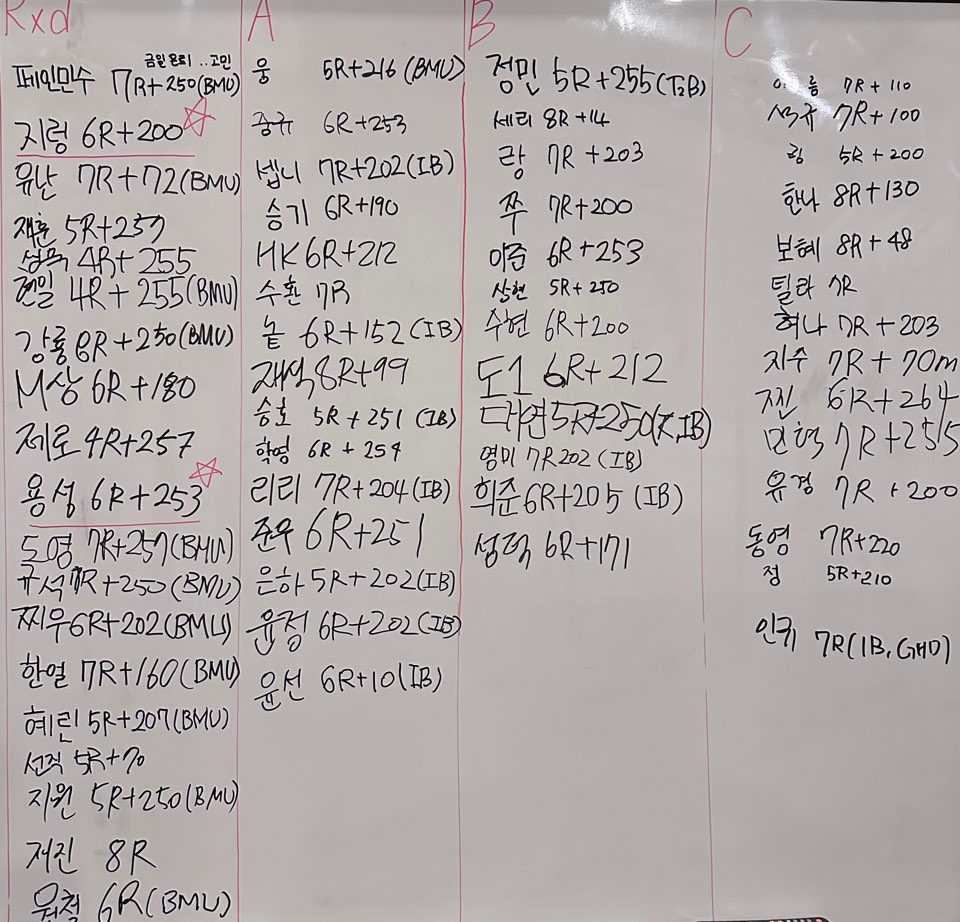 Rxd
페인민수 7R+250(BMU)
지렁 6R+200
유난 7R+72(BMU)
재훈 5R+257
성묵 4R+255
4R+255(BMU)
강룡 6R+250(BMU)
M상 6R+180
제로 4R+257
용성 6R+253
도영 7R+257(BMU)
규석 7R+250(BMU)
찌우 6R+202(BMU)
한열 7R+160(BMU)
혜린 5R+207(BMU)
선직 5R+70
지원 5R+250(BMU)
저진 8R
원철 6R(BMU)
A
웅 5R+216(BMU)
6R+253
넵니 7R+202(IB)
승기 6R+190
HK 6R+212
수환 7R
놑 6R+152(IB)
재석 8R+99
승호 5R+251(IB)
학영 6R+254
리리 7R+204(IB)
준우 6R+251
은하 5R+202(IB)
윤정 6R+202(IB)
윤선 6R+10(IB)
B
정민 5R+255
세리 8R+14
랑 7R+203
쭈 7R+200
이준 6R+253
상현 5R+250
수현 6R+200
도1 6R+212
대연 5R+250
영미 7R202(IB)
희준 6R+205(IB)
성덕 6R+171
C
7R+110
석규 7R+100
링 5R+200
한나 8R+130
보혜 8R+48
틸라 7R
허나 7R+203
지수 7R+70m
찐 6R+264
민혁 7R+255
유경 7R+200
동영 7R+220
정 5R+210
인퀴 7R(IB, GHD)